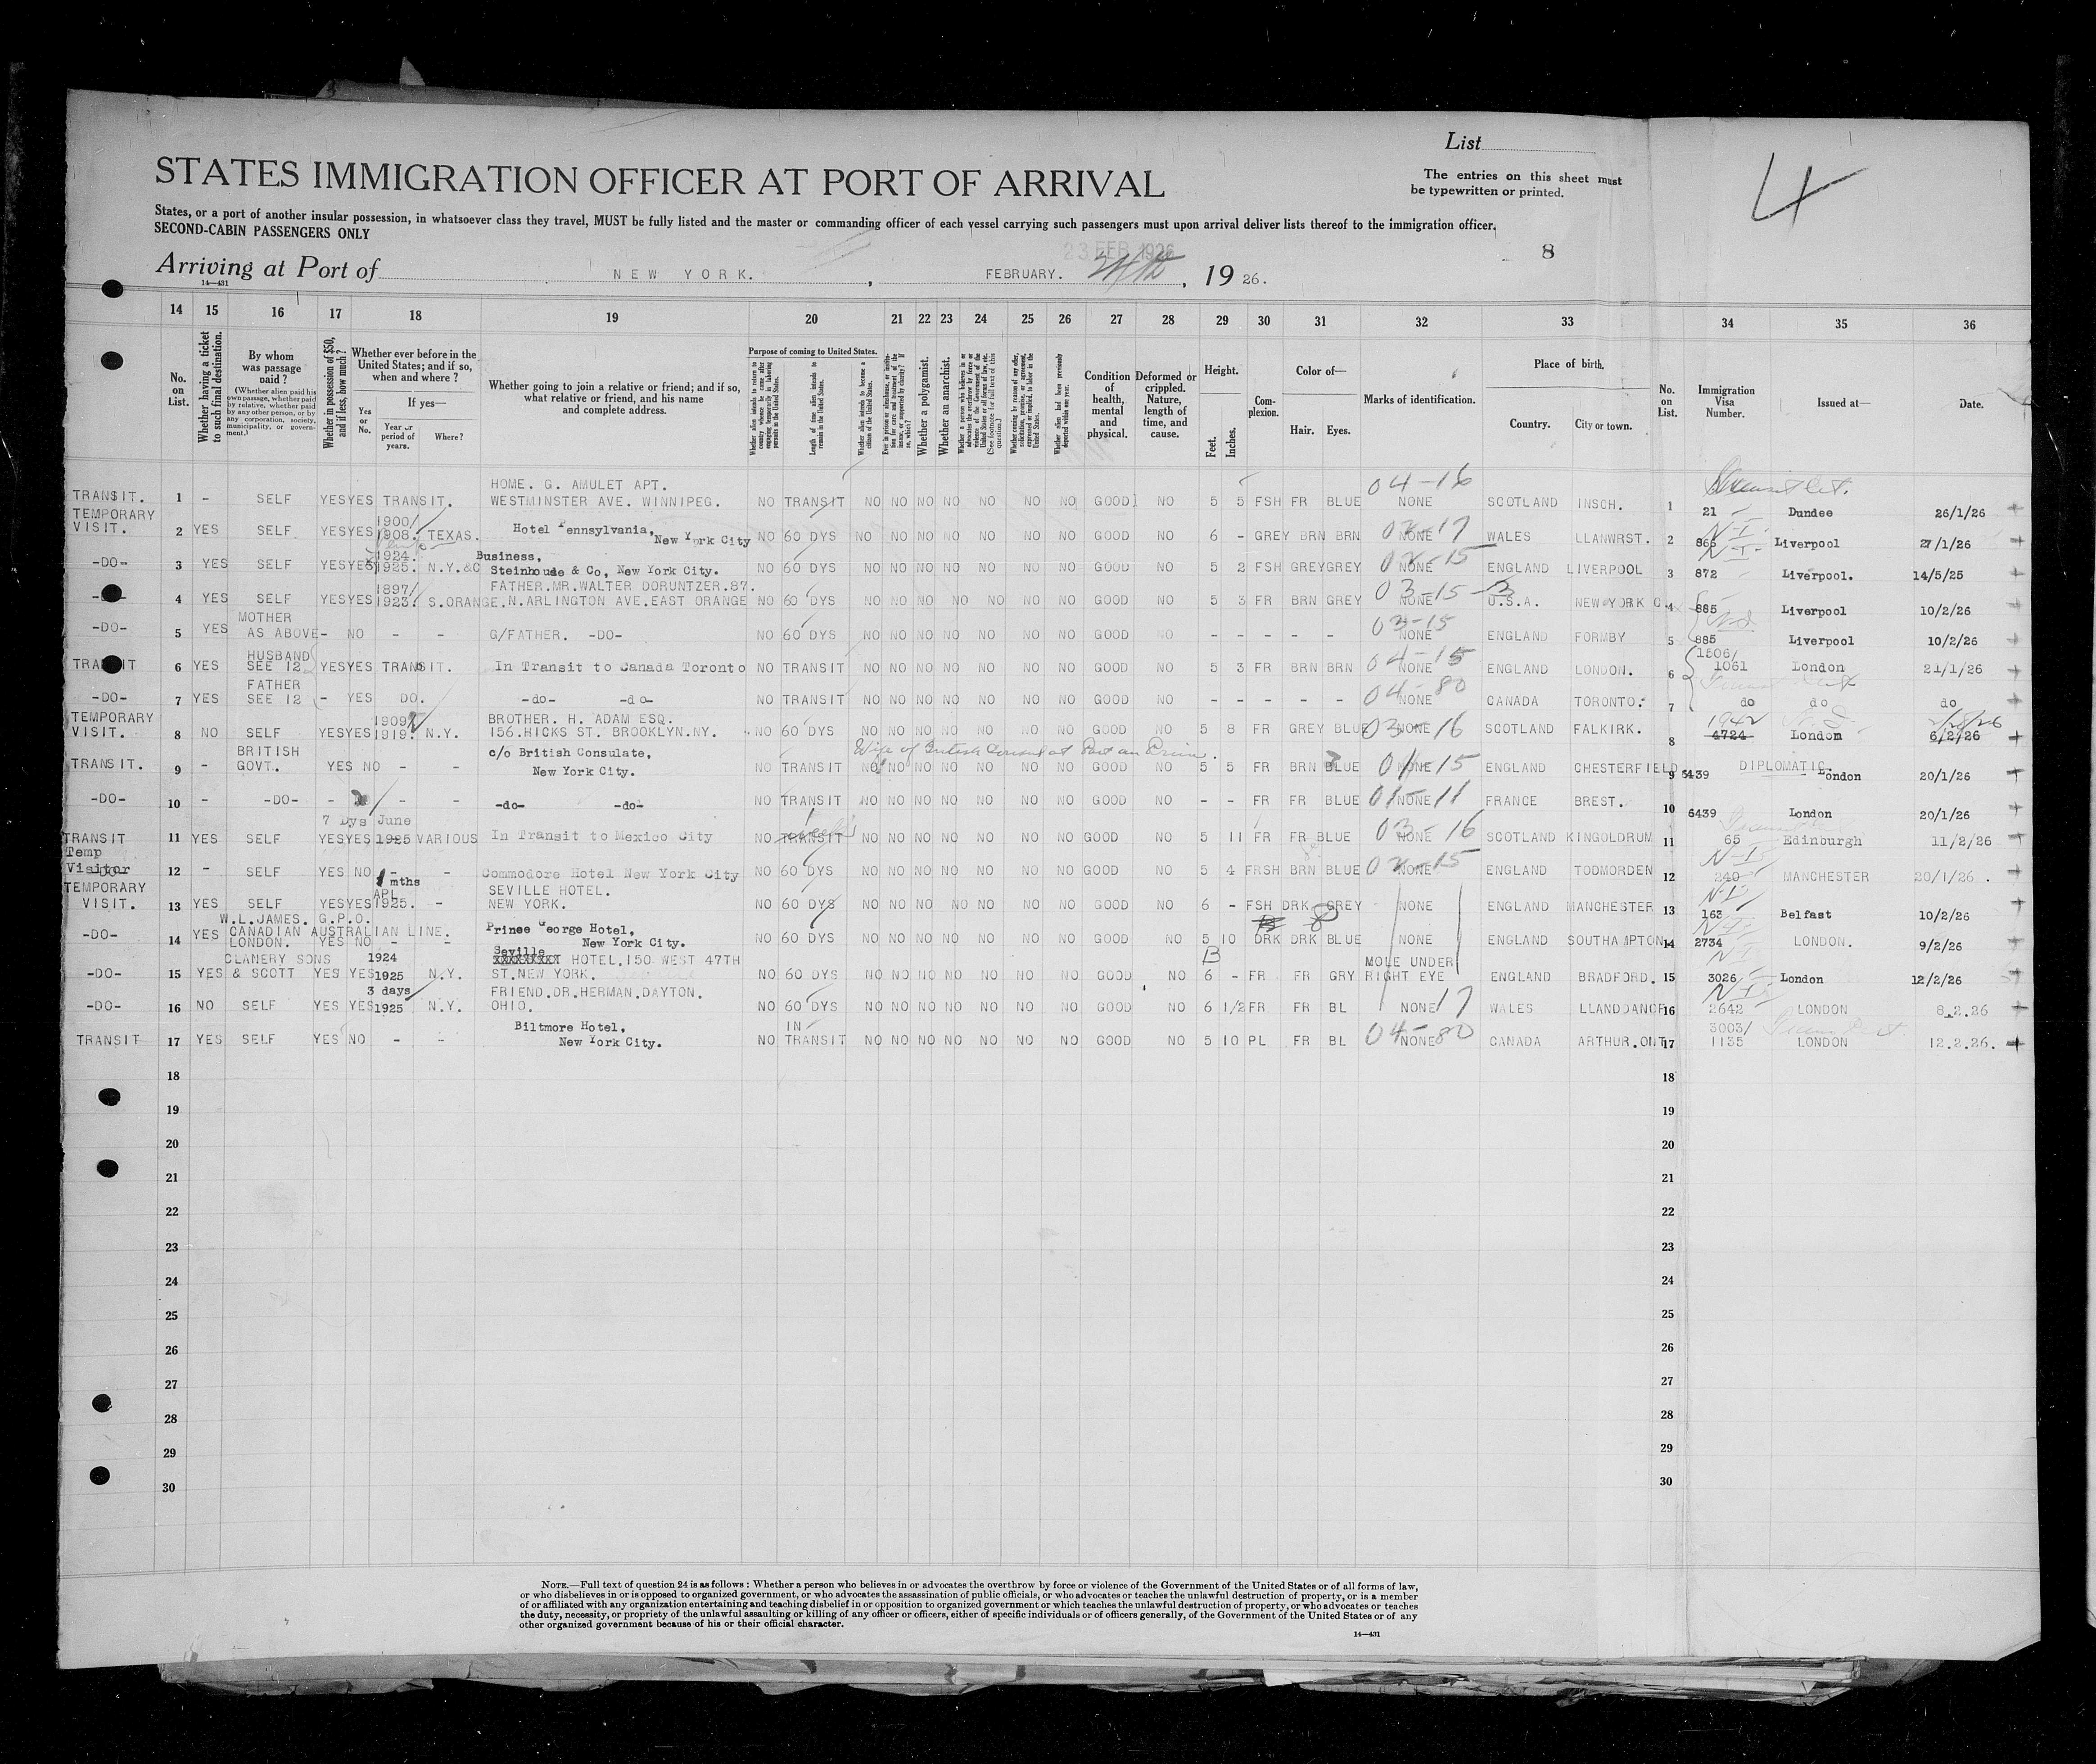 List
STATES IMMIGRATION OFFICER AT PORT OF ARRIVAL
The entries on this sheet must
be typewritten or printed.
4
States, or a port of another insular possession, in whatsoever class they travel, MUST be fully listed and the master or commanding officer of each vessel carrying such passengers must upon arrival deliver lists thereof to the immigration officer.
SECOND-CABIN PASSENGERS ONLY
23 FEB 1926
8
Arriving at Port of NEW YORK. , FEBRUARY. 24th , 19 26.
14—431
14 15 16 17 18 19 20 21 22 23 24 25 26 27 28 29 30 31 32 33 34 35 36
No. on List.
Whether having a ticket to such final destination.
By whom was passage paid?
(Whether alien paid his own passage, whether paid by relative, whether paid by any other person, or by any corporation, society, municipality, or government.)
Whether in possession of $50, and if less, how much?
Whether ever before in the United States; and if so, when and where?
Yes or No.
If yes—
Year or period of years.
Where?
Whether going to join a relative or friend; and if so, what relative or friend, and his name and complete address.
Purpose of coming to United States.
Length of time alien intends to remain in the United States.
Whether alien intends to become a citizen of the United States.
Whether a polygamist.
Whether an anarchist.
Condition of health, mental and physical.
Deformed or crippled. Nature, length of time, and cause.
Height.
Feet. Inches.
Complexion.
Color of—
Hair. Eyes.
Marks of identification.
Place of birth.
Country. City or town.
No. on List.
Immigration Visa Number.
Issued at—
Date.
HOME. G. AMULET APT. 04-16
TRANSIT. 1 - SELF YES YES TRANSIT. WESTMINSTER AVE. WINNIPEG. NO TRANSIT NO NO NO NO NO NO NO GOOD NO 5 5 FSH FR BLUE NONE SCOTLAND INSCH. 1 21 Dundee 26/1/26
TEMPORARY 1900/
VISIT. 2 YES SELF YES YES 1908. TEXAS. Hotel Pennsylvania, New York City NO 60 DYS NO NO NO NO NO NO NO GOOD NO 6 - GREY BRN BRN NONE WALES LLANWRST. 2 865 Liverpool 27/1/26
1924. Business,
-DO- 3 YES SELF YES YES 1925. N.Y.&C Steinhoude & Co, New York City. NO 60 DYS NO NO NO NO NO NO NO GOOD NO 5 2 FSH GREY GREY NONE ENGLAND LIVERPOOL 3 872 Liverpool. 14/5/25
1897/ FATHER.MR.WALTER DORUNTZER.87. 03-15
4 YES SELF YES YES 1923. S.ORANGE. N.ARLINGTON AVE.EAST ORANGE NO 60 DYS NO NO NO NO NO NO NO GOOD NO 5 3 FR BRN GREY NONE U.S.A. NEW YORK C. 4 885 Liverpool 10/2/26
MOTHER 03-15
-DO- 5 YES AS ABOVE - NO - - G/FATHER. -DO- NO 60 DYS NO NO NO NO NO NO NO GOOD NO - - - - - NONE ENGLAND FORMBY 5 885 Liverpool 10/2/26
HUSBAND 04-15 1506/
TRANSIT 6 YES SEE 12 YES YES TRANSIT. In Transit to Canada Toronto NO TRANSIT NO NO NO NO NO NO NO GOOD NO 5 3 FR BRN BRN NONE ENGLAND LONDON. 6 1061 London 21/1/26
FATHER 04-80
-DO- 7 YES SEE 12 - YES DO. -do- -do- NO TRANSIT NO NO NO NO NO NO NO GOOD NO - - - - - NONE CANADA TORONTO. 7 do do do
TEMPORARY 1909 BROTHER. H. ADAM ESQ. 1942
VISIT. 8 NO SELF YES YES 1919. N.Y. 156.HICKS ST. BROOKLYN.NY. NO 60 DYS NO NO NO NO NO NO NO GOOD NO 5 8 FR GREY BLUE 03 NONE 16 SCOTLAND FALKIRK. 8 4724 London 6/2/26
BRITISH c/o British Consulate, Wife of British Consul at Port au Prince. DIPLOMATIC
TRANSIT. 9 - GOVT. YES NO - - New York City. NO TRANSIT NO NO NO NO NO NO NO GOOD NO 5 5 FR BRN BLUE 01 NONE 15 ENGLAND CHESTERFIELD 9 6439 London 20/1/26
-DO- 10 - -DO- - - - -do- -do- NO TRANSIT NO NO NO NO NO NO NO GOOD NO - - FR FR BLUE NONE 11 FRANCE BREST. 10 6439 London 20/1/26
7 Dys June
TRANSIT 11 YES SELF YES YES 1925 VARIOUS In Transit to Mexico City NO TRANSIT NO NO NO NO NO NO NO GOOD NO 5 11 FR FR BLUE 03 NONE 16 SCOTLAND KINGOLDRUM 11 65 Edinburgh 11/2/26
Temp
Visitor
-DO- 12 - SELF YES NO - - Commodore Hotel New York City NO 60 DYS NO NO NO NO NO NO NO GOOD NO 5 4 FRSH BRN BLUE NONE 15 ENGLAND TODMORDEN 12 240 MANCHESTER 20/1/26.
TEMPORARY mths APL SEVILLE HOTEL.
VISIT. 13 YES SELF YES YES 1925. - NEW YORK. NO 60 DYS NO NO NO NO NO NO NO GOOD NO 6 - FSH DRK GREY NONE ENGLAND MANCHESTER 13 163 Belfast 10/2/26
W.L.JAMES. G.P.O.
CANADIAN AUSTRALIAN LINE. Prince George Hotel,
-DO- 14 YES LONDON. YES NO - - New York City. NO 60 DYS NO NO NO NO NO NO NO GOOD NO 5 10 DRK DRK BLUE NONE ENGLAND SOUTHAMPTON 14 2734 LONDON. 9/2/26
CLANERY SONS 1924 Seville HOTEL.150 WEST 47TH MOLE UNDER
-DO- 15 YES & SCOTT YES YES 1925 N.Y. ST.NEW YORK. NO 60 DYS NO NO NO NO NO NO NO GOOD NO 6 - FR FR GRY RIGHT EYE ENGLAND BRADFORD. 15 3026 London 12/2/26
3 days FRIEND.DR.HERMAN.DAYTON.
-DO- 16 NO SELF YES YES 1925 N.Y. OHIO. NO 60 DYS NO NO NO NO NO NO NO GOOD NO 6 1/2 FR FR BL NONE 17 WALES LLANDDANCF 16 2642 LONDON 8.2.26
Biltmore Hotel, IN 3003/
TRANSIT 17 YES SELF YES NO - - New York City. NO TRANSIT NO NO NO NO NO NO NO GOOD NO 5 10 PL FR BL 04 NONE 80 CANADA ARTHUR.ONT 17 1135 LONDON 12.2.26.
18 18
19 19
20 20
21 21
22 22
23 23
24 24
25 25
26 26
27 27
28 28
29 29
30 30
NOTE.—Full text of question 24 is as follows: Whether a person who believes in or advocates the overthrow by force or violence of the Government of the United States or of all forms of law,
or who disbelieves in or is opposed to organized government, or who advocates the assassination of public officials, or who advocates or teaches the unlawful destruction of property, or is a member
of or affiliated with any organization entertaining and teaching disbelief in or opposition to organized government or which teaches the unlawful destruction of property, or who advocates or teaches
the duty, necessity, or propriety of the unlawful assaulting or killing of any officer or officers, either of specific individuals or of officers generally, of the Government of the United States or of any
other organized government because of his or their official character.
14—431